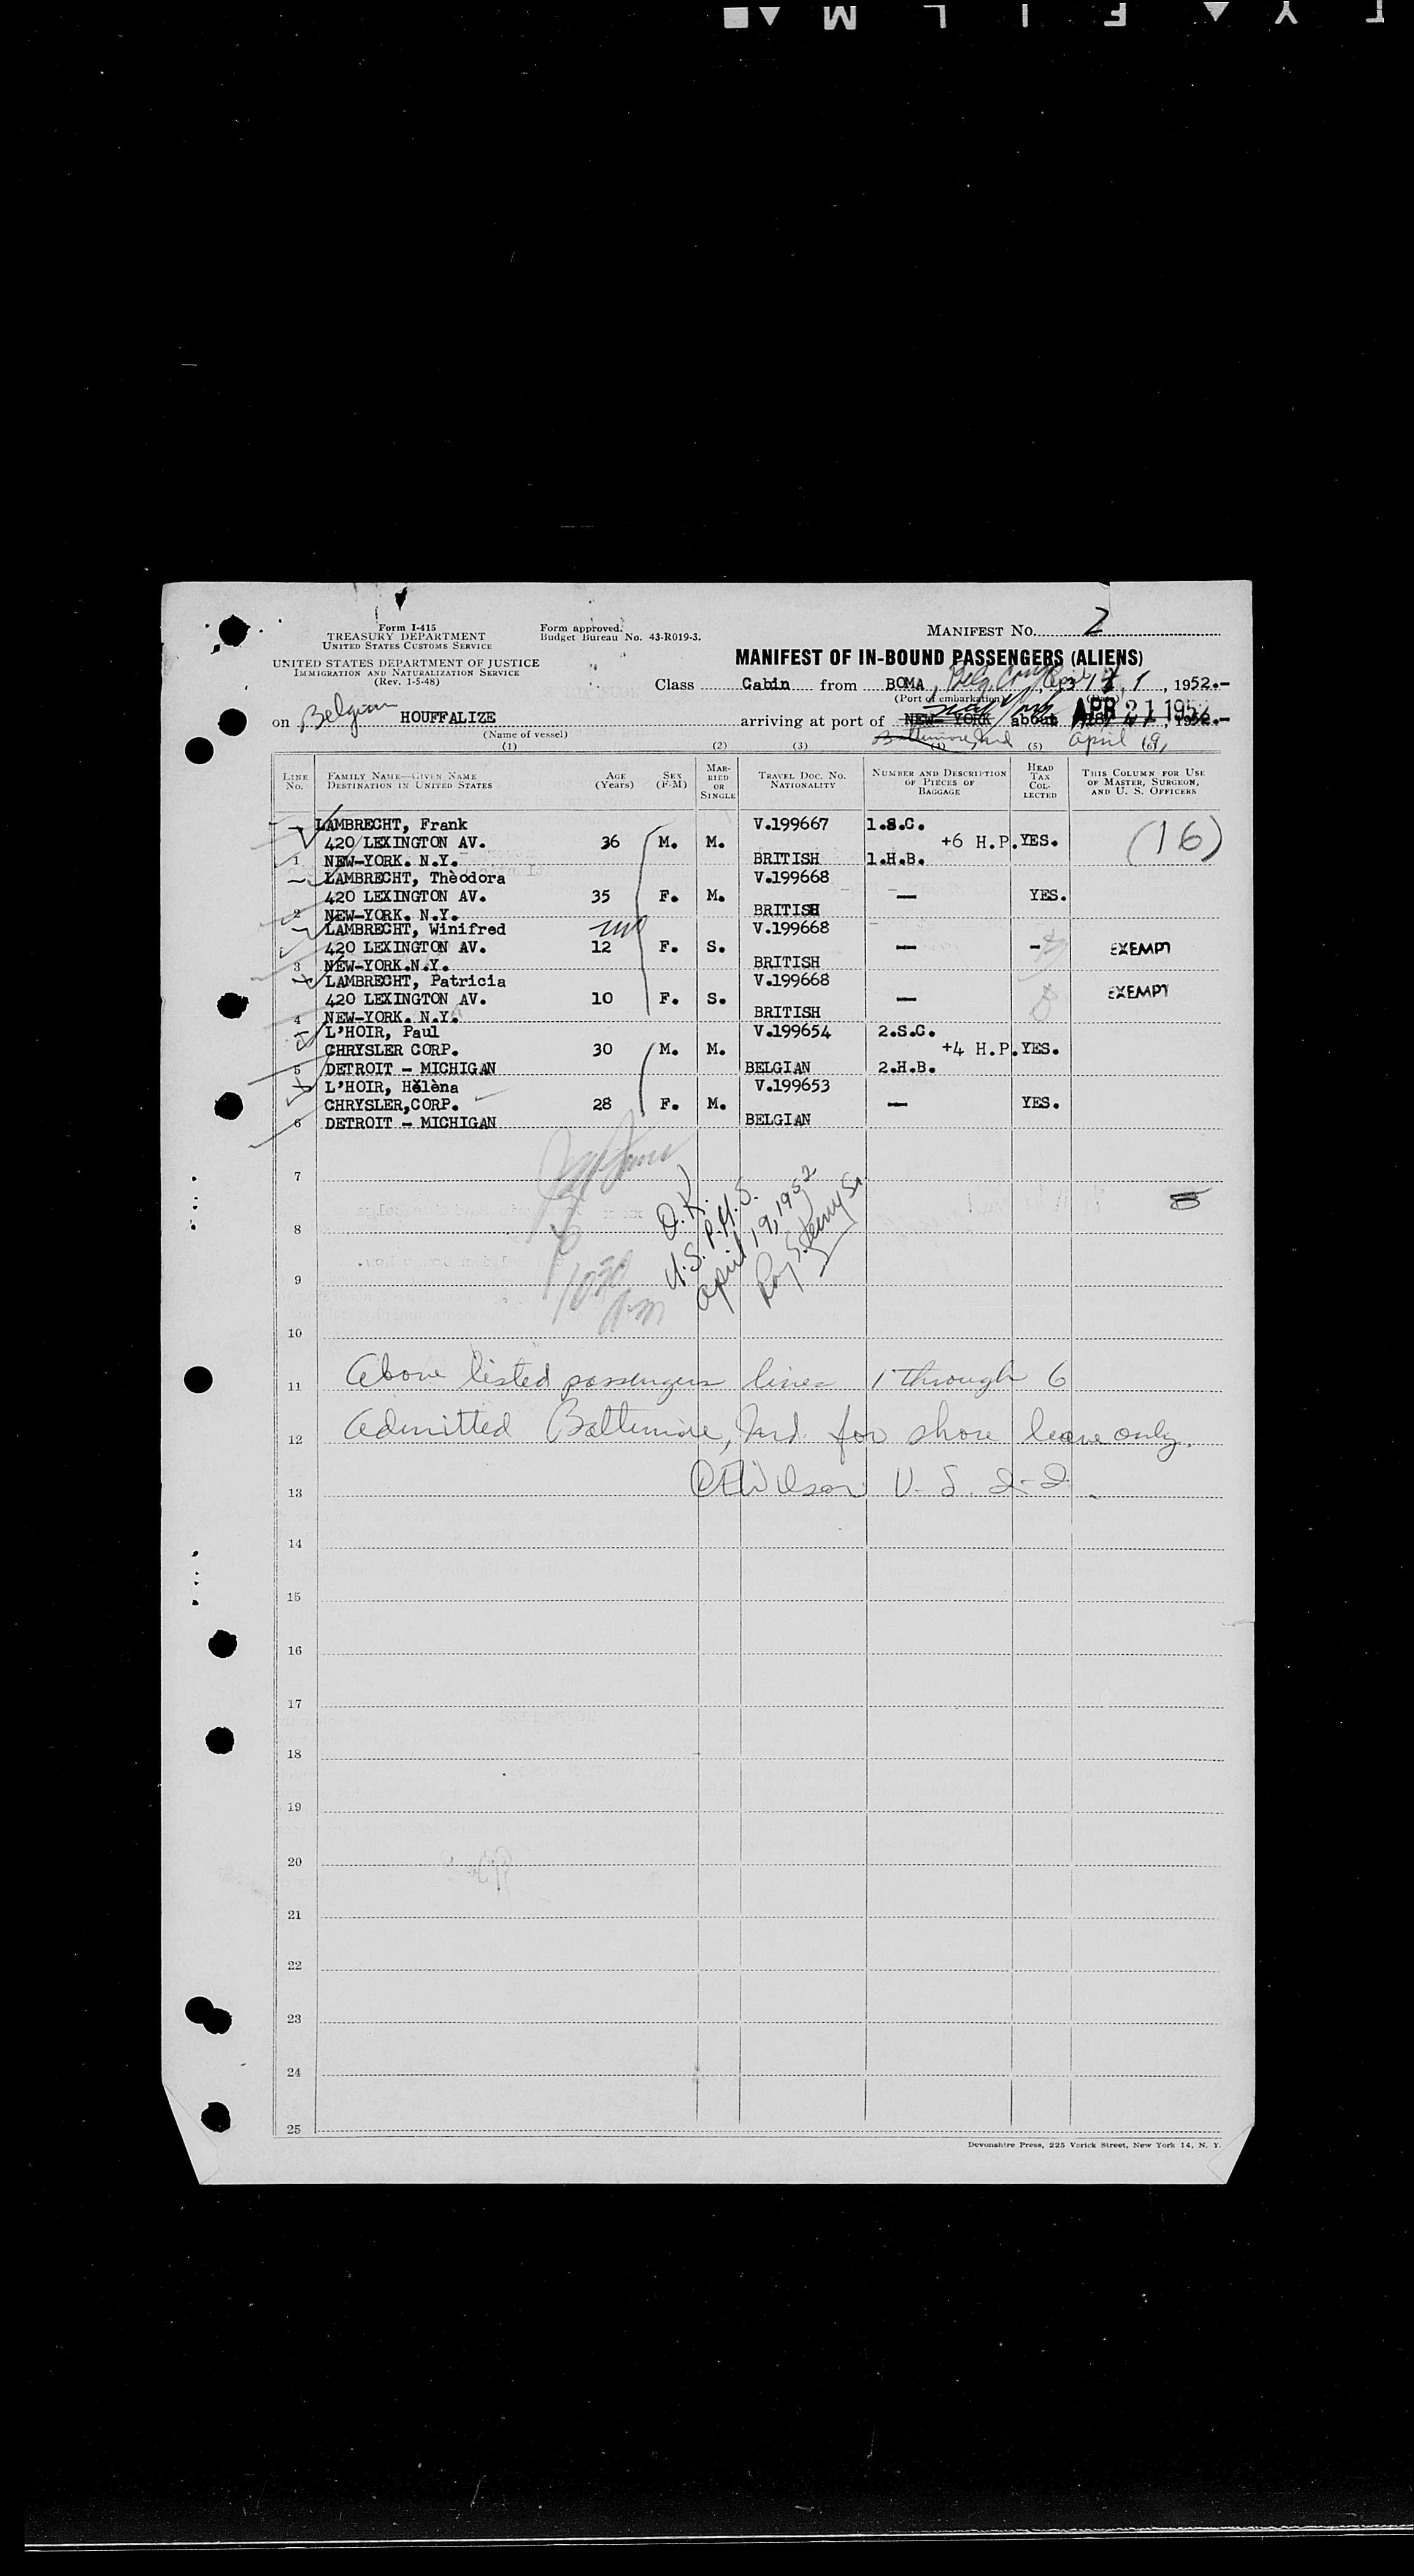 Form I-415
TREASURY DEPARTMENT
UNITED STATES CUSTOMS SERVICE
UNITED STATES DEPARTMENT OF JUSTICE
IMMIGRATION AND NATURALIZATION SERVICE
(Rev. 1-5-48)
Form approved.
Budget Bureau No. 43-R019-3.
MANIFEST NO. 2
MANIFEST OF IN-BOUND PASSENGERS (ALIENS)
Class Cabin from BOMA, Belg. Congo, 1, 1952.-
(Port of embarkation) (Date)
on Belgian HOUFFALIZE arriving at port of NEW-YORK about APR 21 1952
(Name of vessel)
New York
Baltimore, Md April 19,
(1) (2) (3) (4) (5) (6)
LINE No. FAMILY NAME—GIVEN NAME DESTINATION IN UNITED STATES AGE (Years) SEX (F-M) MARRIED OR SINGLE TRAVEL DOC. NO. NATIONALITY NUMBER AND DESCRIPTION OF PIECES OF BAGGAGE HEAD TAX COLLECTED THIS COLUMN FOR USE OF MASTER, SURGEON, AND U. S. OFFICERS
LAMBRECHT, Frank V.199667 1.S.C.
420 LEXINGTON AV. 36 M. M. +6 H.P. YES. (16)
1 NEW-YORK. N.Y. BRITISH 1.H.B.
LAMBRECHT, Thèodora V.199668
420 LEXINGTON AV. 35 F. M. — YES.
2 NEW-YORK. N.Y. BRITISH
LAMBRECHT, Winifred V.199668
420 LEXINGTON AV. 12 F. S. — - EXEMPT
3 NEW-YORK.N.Y. BRITISH
LAMBRECHT, Patricia V.199668
420 LEXINGTON AV. 10 F. S. — EXEMPT
4 NEW-YORK. N.Y. BRITISH
L'HOIR, Paul V.199654 2.S.C.
CHRYSLER CORP. 30 M. M. +4 H.P. YES.
5 DETROIT - MICHIGAN BELGIAN 2.H.B.
L'HOIR, Hélèna V.199653
CHRYSLER,CORP. 28 F. M. — YES.
6 DETROIT - MICHIGAN BELGIAN
7
O.K.
U.S.P.H.S.
April 19, 1952
8
9
10
11 Above listed passengers lines 1 through 6
12 Admitted Baltimore, Md. for shore leave only.
13 Wilson U. S. I. I.
14
15
16
17
18
19
20
21
22
23
24
25
Devonshire Press, 225 Varick Street, New York 14, N. Y.